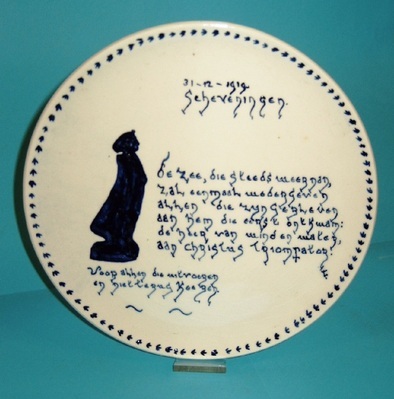 31-12-1919
Scheveningen.
de zee, die steeds weer nam,
zal eenmaal wedergeven
allen die zyn gebleven
aan hem die eerst ontkwam:
de heer van wind en water,
aan christus
Voor allen die uitvoeren
en niet terug